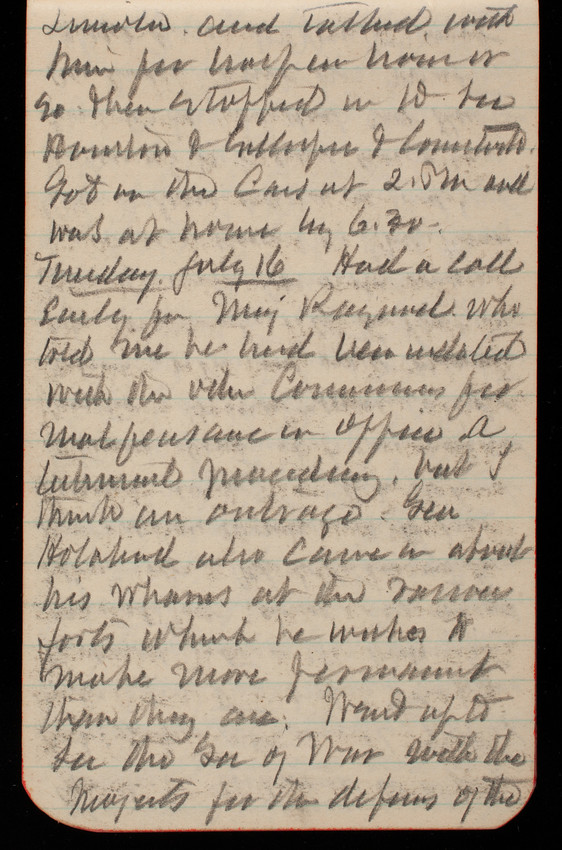 Lincoln and talked with
him for half an hour or
so then stopped in to see
Houston & Gillespie &
Got on the Cars at 2. PM and
was at home by 6.30.
Tuesday. July 16 Had a call
Early for Maj Raymond. Who
told me he had been indicted
with the other Commrs for
malfeasance in office. A
proceeding, but I
think an outrage. Gen
Holabird also came in about
his wharves at the various
forts which he wishes to
make more permanent
than they are. Went up to
see the Sec of War with the
projects for the defense of the